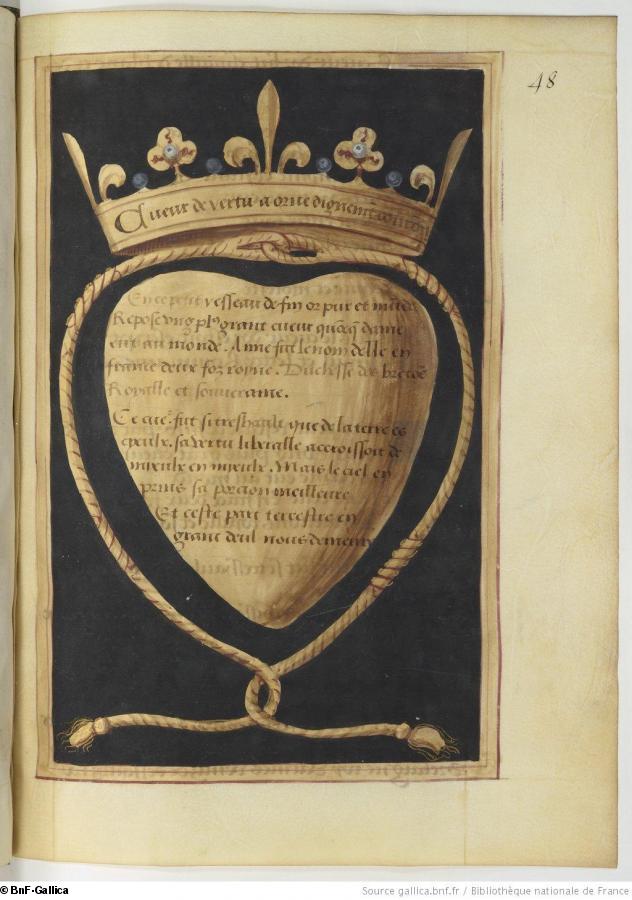 48
Cueur de vertu a orne dignemēt
En ce petit vesseau de fin or pur et munde
Repose ung pl9 grant cueur quōcq dame
eut au monde. Anne fut le nom delle en
france deux foiz royne. Duchesse des bretōs
Royalle et souveraine.
Ce cue2 fut si treshault que de la terre es
cyeulx. sa vertu liberalle accroissoit de
mieulx en mieulx. Mais le ciel en
prins sa porcion meilleure
Et ceste part terrestre en
grant deul nous demeure
© BnF-Gallica
Source gallica.bnf.fr / Bibliothèque nationale de France